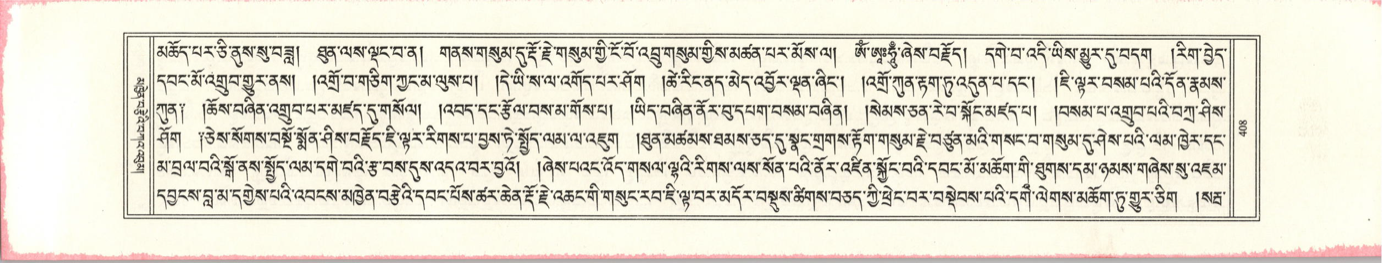 མཆོད་པར་ཅི་ནུས་སུ་བཟླ། ཐུན་ལས་ལྡང་བ་ན། གནས་གསུམ་དུ་རྡོ་རྗེ་གསུམ་གྱི་ངོ་བོ་འབྲུ་གསུམ་གྱིས་མཚན་པར་མོས་ལ། ཨོཾ་ཨཱཿཧཱུྃ་ཞེས་བརྗོད། དགེ་བ་འདི་ཡིས་མྱུར་དུ་བདག །རིག་བྱེད་
དབང་མོ་འགྲུབ་གྱུར་ནས། །འགྲོ་བ་གཅིག་ཀྱང་མ་ལུས་པ། །དེ་ཡི་ས་ལ་འགོད་པར་ཤོག །ཚེ་རིང་ནད་མེད་འབྱོར་ལྡན་ཞིང་། །འགྲོ་ཀུན་རྟག་ཏུ་འདུན་པ་དང་། །ཇི་ལྟར་བསམ་པའི་དོན་རྣམས་
ཀུན། །ཆོས་བཞིན་འགྲུབ་པར་མཛད་དུ་གསོལ། །འབད་དང་རྩོལ་བས་མ་གོས་པ། །ཡིད་བཞིན་ནོར་བུ་དཔག་བསམ་བཞིན། །སེམས་ཅན་རེ་བ་སྐོང་མཛད་པ། །བསམ་པ་འགྲུབ་པའི་བཀྲ་ཤིས་
ཤོག །ཅེས་སོགས་བསྔོ་སྨོན་ཤིས་བརྗོད་ཇི་ལྟར་རིགས་པ་བྱས་ཏེ་སྤྱོད་ལམ་ལ་འཇུག །ཐུན་མཚམས་ཐམས་ཅད་དུ་སྣང་གྲགས་རྟོག་གསུམ་རྗེ་བཙུན་མའི་གསང་བ་གསུམ་དུ་ཤེས་པའི་ལམ་ཁྱེར་དང་
མ་བྲལ་བའི་སྒོ་ནས་སྤྱོད་ལམ་དགེ་བའི་རྩ་བས་དུས་འདའ་བར་བྱའོ། །ཞེས་པའང་འོད་གསལ་ལྷའི་རིགས་ལས་སོན་པའི་ནོར་འཛིན་སྐྱོང་བའི་དབང་མོ་མཆོག་གི་ཐུགས་དམ་ཉམས་གཞེས་སུ་འཇམ་
དབྱངས་བླ་མ་དགྱེས་པའི་འབངས་མཁྱེན་བརྩེའི་དབང་པོས་ཚར་ཆེན་རྡོ་རྗེ་འཆང་གི་གསུང་རབ་ཇི་ལྟ་བར་མདོར་བསྡུས་ཚིགས་བཅད་ཀྱི་ཕྲེང་བར་བསྡེབས་པའི་དགེ་ལེགས་མཆོག་ཏུ་གྱུར་ཅིག །སརྦ་
408